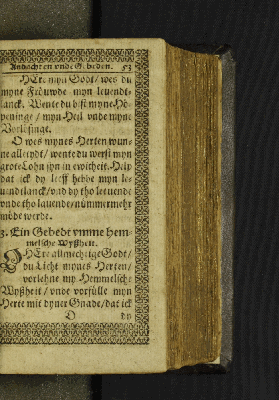 Andachten vnde Gebeden. 53
HEre myn Godt/ wes du
myne Fröuwde myn leuendt-
lanck. Wente du bist myne Hö-
peninge / myn Heil vnde myne
Vorlösinge.
O wes mynes Herten wun-
ne alletydt/ wente du werst myn
grote Lohn syn in ewicheit. Help
dat ick dy leeff hebbe myn le-
uendtlanck/ vnd dy tho leeuende
vnde tho lauende/ nümmermehr
möde werde.
3. Ein Gebedt vmme hem-
melsche Wyßheit.
HEre allmechtige Godt/
du Licht mynes Herten/
vorlehne my Hemmelische
Wyßheit / vnde vorfülle myn
Herte mit dyner Gnade/ dat ick
O dy